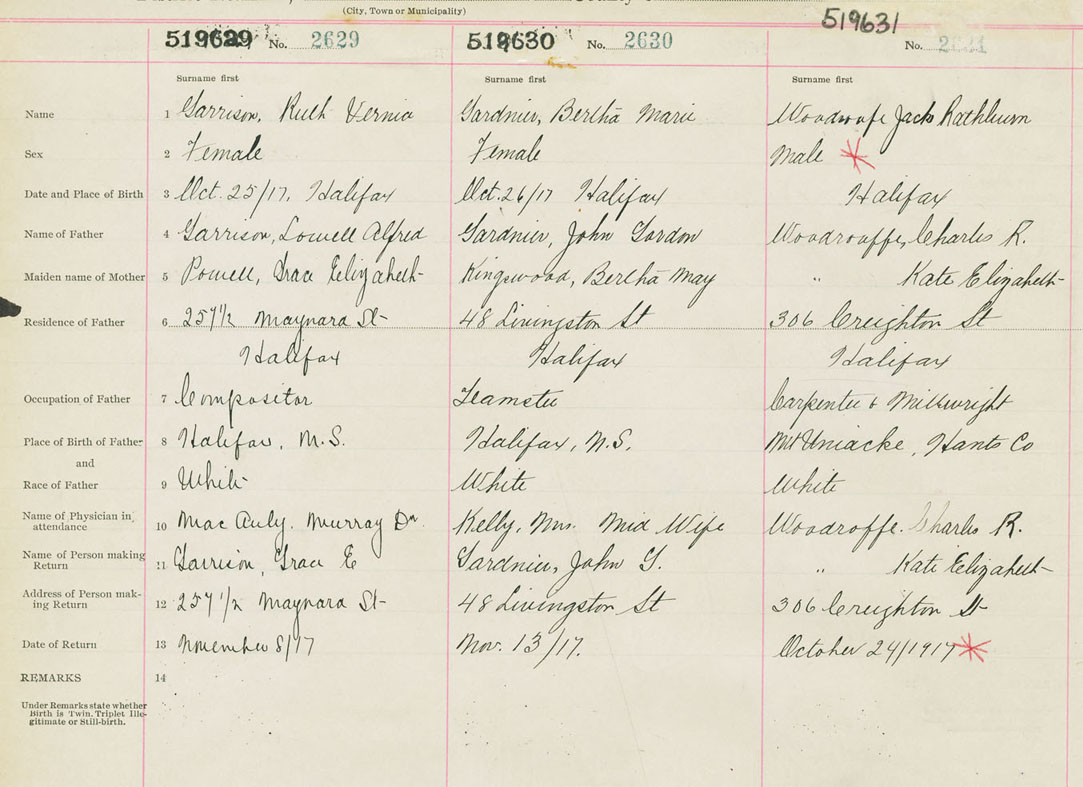 (City, Town or Municipality)
519629 No. 2629 519630 No. 2630 519631 No.
Surname first Surname first Surname first
Name 1 Garrison, Ruth Vernia Gardnier, Bertha Marie Jack Rathburn
Sex 2 Female Female Male
Date and Place of Birth 3 Oct. 25/17, Halifax Oct. 26/17 Halifax Halifax
Name of Father 4 Garrison, Lowell Alfred Gardnier, John Gordon Woodrouffe, Charles R.
Maiden name of Mother 5 Powell, Grace Elizabeth Kingswood, Bertha May " Kate Elizabeth
Residence of Father 6 257 1/2 Maynard St 48 Livingston St 306 Creighton St
Halifax Halifax Halifax
Occupation of Father 7 Compositor Teamster Carpenter & Millwright
Place of Birth of Father 8 Halifax, N.S. Halifax, N.S. Mt Uniacke, Hants Co
and
Race of Father 9 White White White
Name of Physician in
attendance 10 Mac Auly. Murray Dr. Kelly, Mrs. Mid Wife Woodroffe. Charles R.
Name of Person making
Return 11 Garrison, Grace E Gardnier, John G. " Kate Elizabeth
Address of Person mak-
ing Return 12 257 1/2 Maynard St 48 Livingston St 306 Creighton St
Date of Return 13 November 8/17 Nov. 13/17. October 24/1917
REMARKS 14
Under Remarks state whether
Birth is Twin, Triplet Ille-
gitimate or Still-birth.